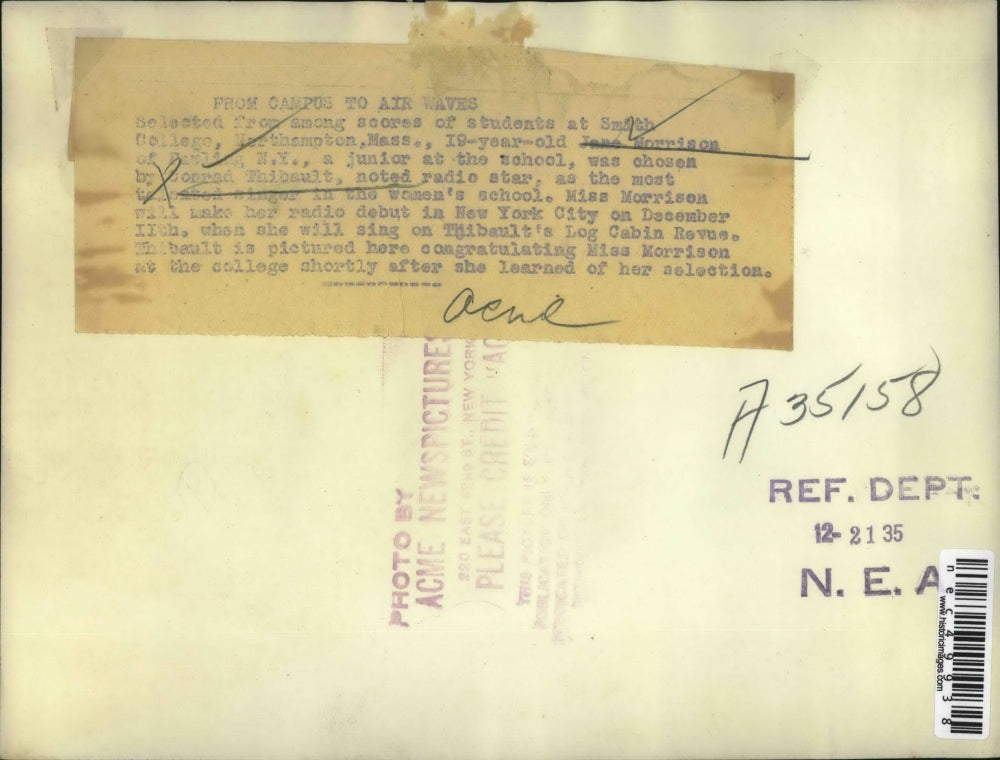 FROM CAMPUS TO AIR WAVES
Selected from among scores of students at Smith
College, Northampton,Mass., 19-year-old Jane Morrison
of Pawling N.Y., a junior at the school, was chosen
by Conrad Thibault, noted radio star, as the most
talented singer in the women's school. Miss Morrison
will make her radio debut in New York City on December
IIth, when she will sing on Thibault's Log Cabin Revue.
Thibault is pictured here congratulating Miss Morrison
at the college shortly after she learned of her selection.
acme
A 35158
PHOTO BY
ACME NEWSPICTURES
220 EAST 42ND ST., NEW YORK
PLEASE CREDIT "AC
THIS PICTURE IS SOLD
PUBLICATION ON
REF. DEPT.
12- 21 35
N. E. A
nec49938
www.historicimages.com